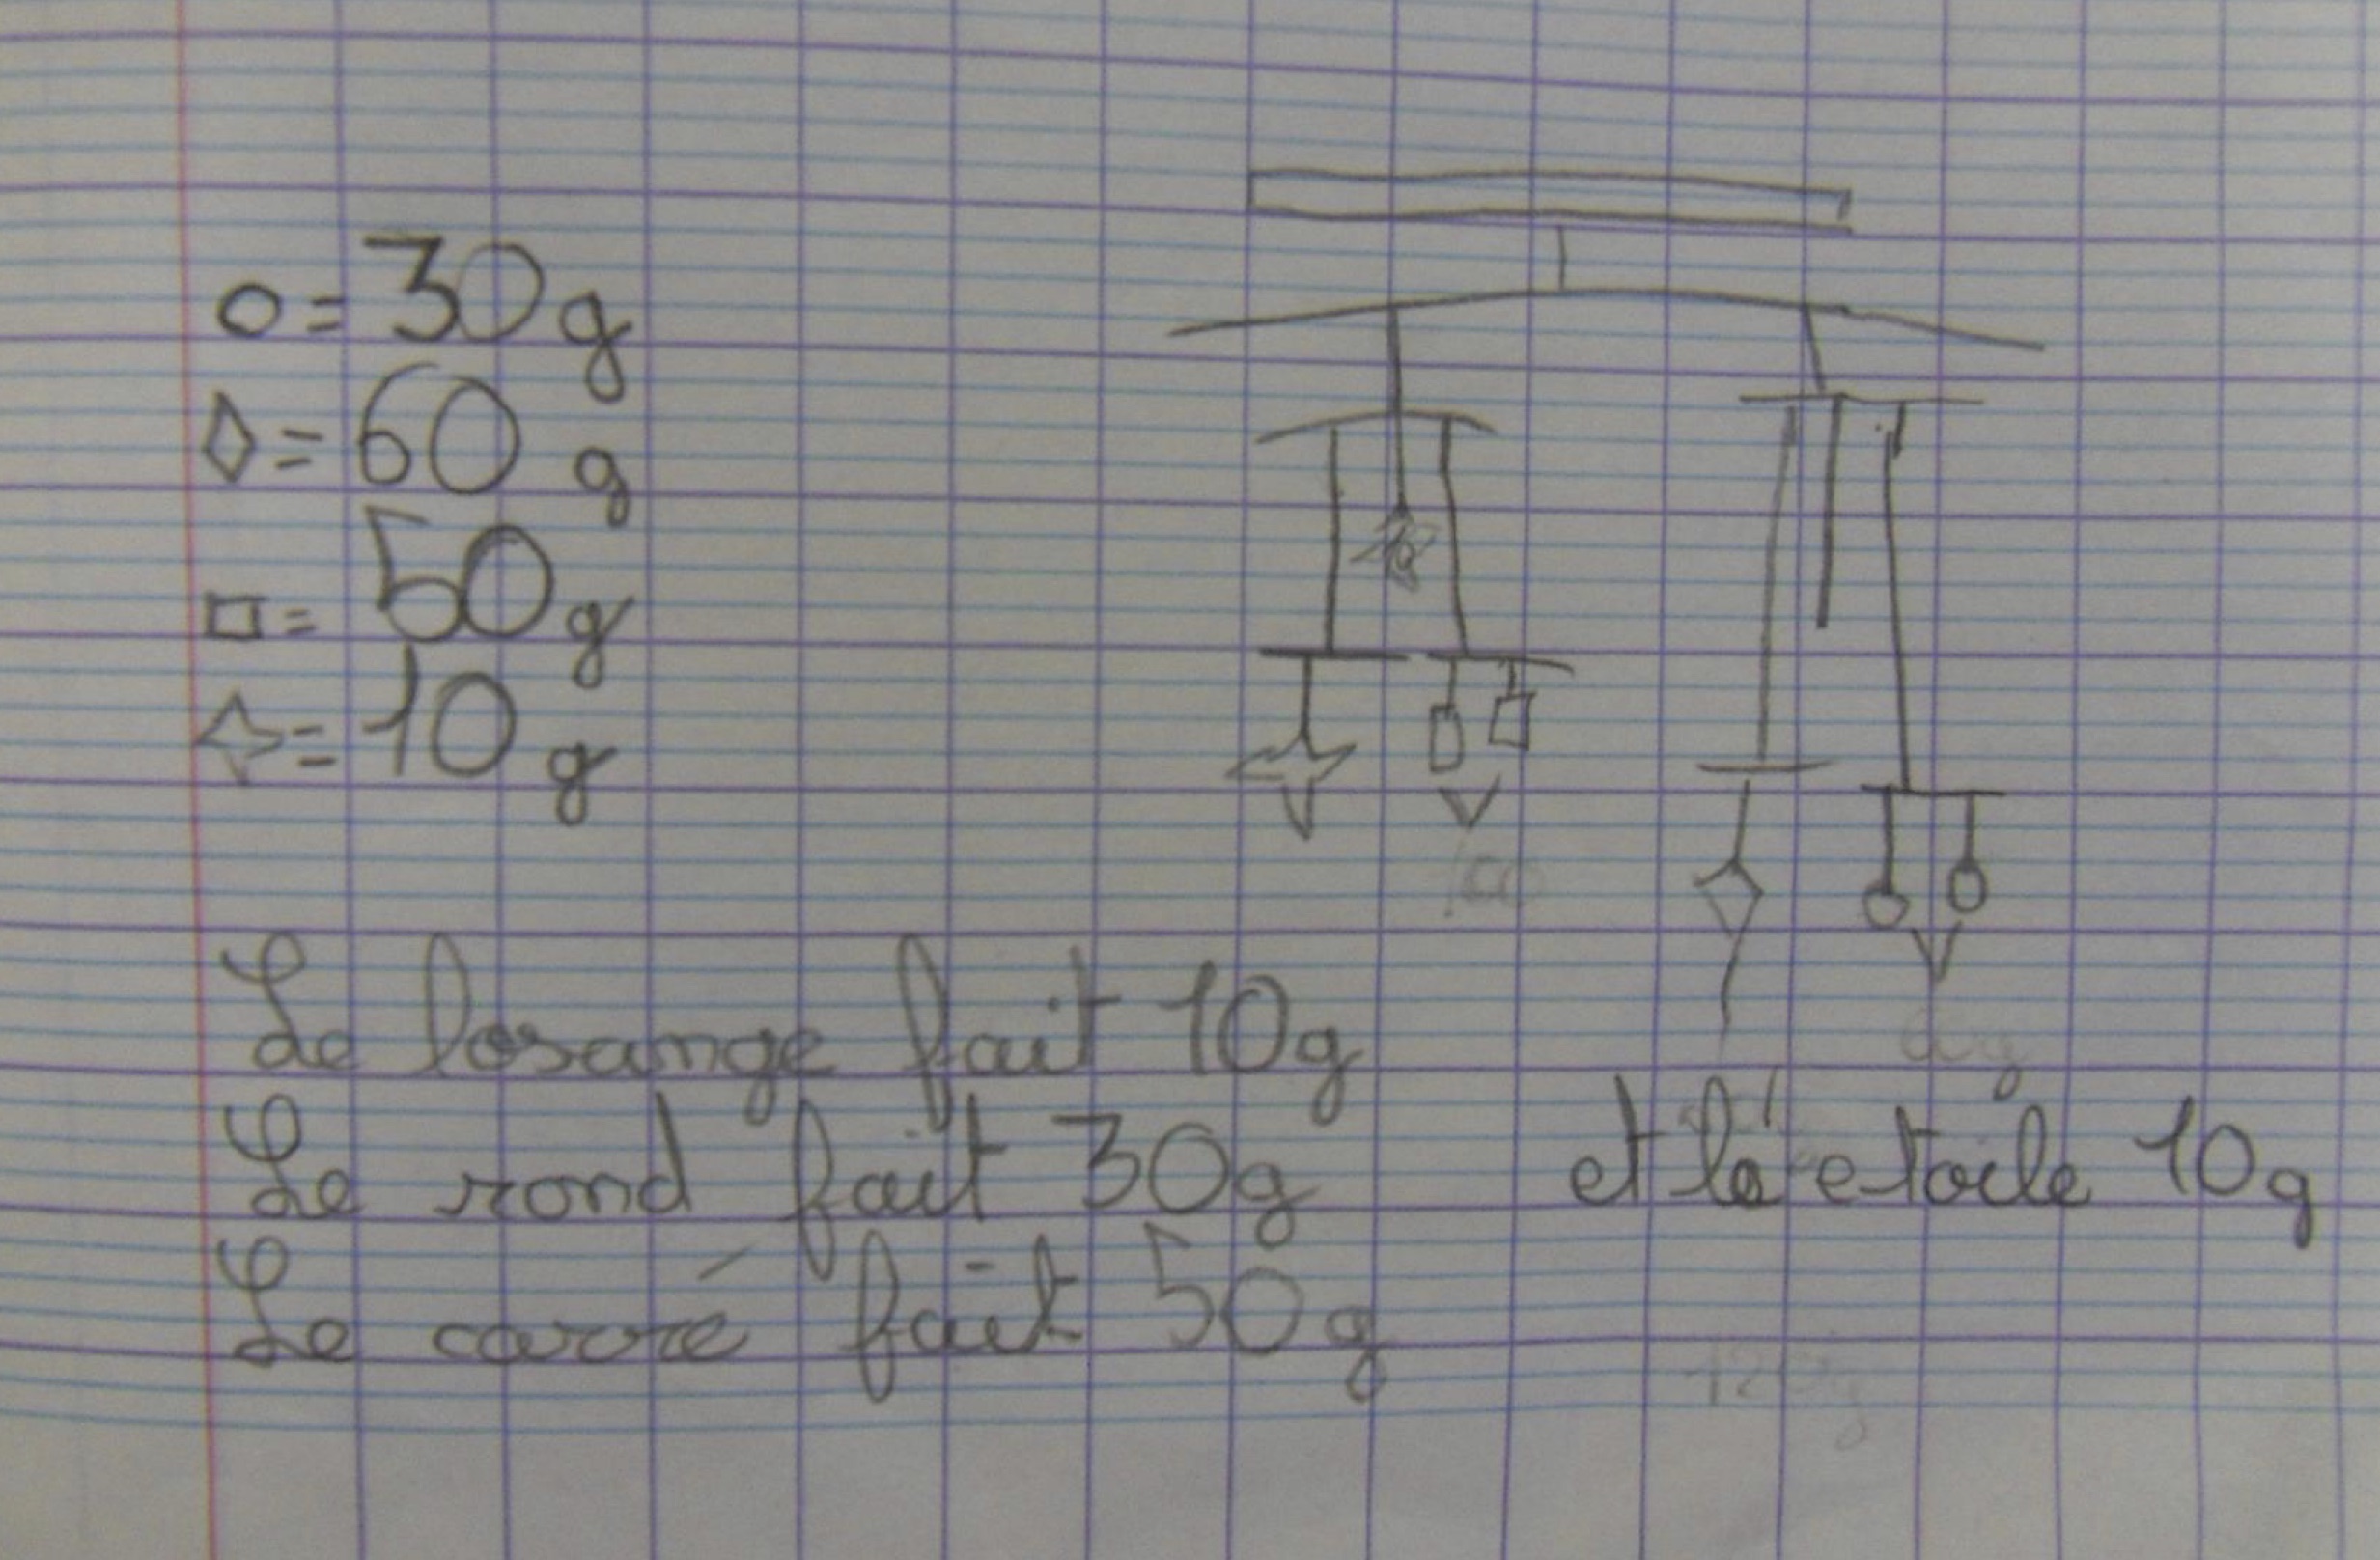 o = 30 g
◊ = 60 g
□ = 50 g
✧ = 10 g
100
60g
Le losange fait 10g
Le rond fait 30g et l'etoile 10g
Le carré fait 50g
120g